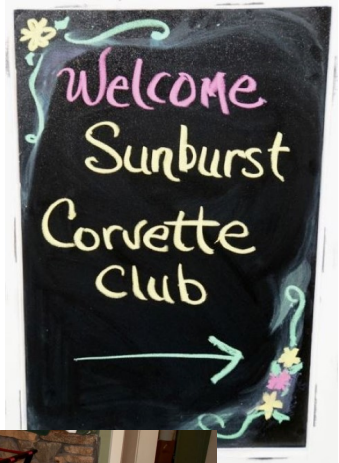 Welcome
Sunburst
Corvette
Club